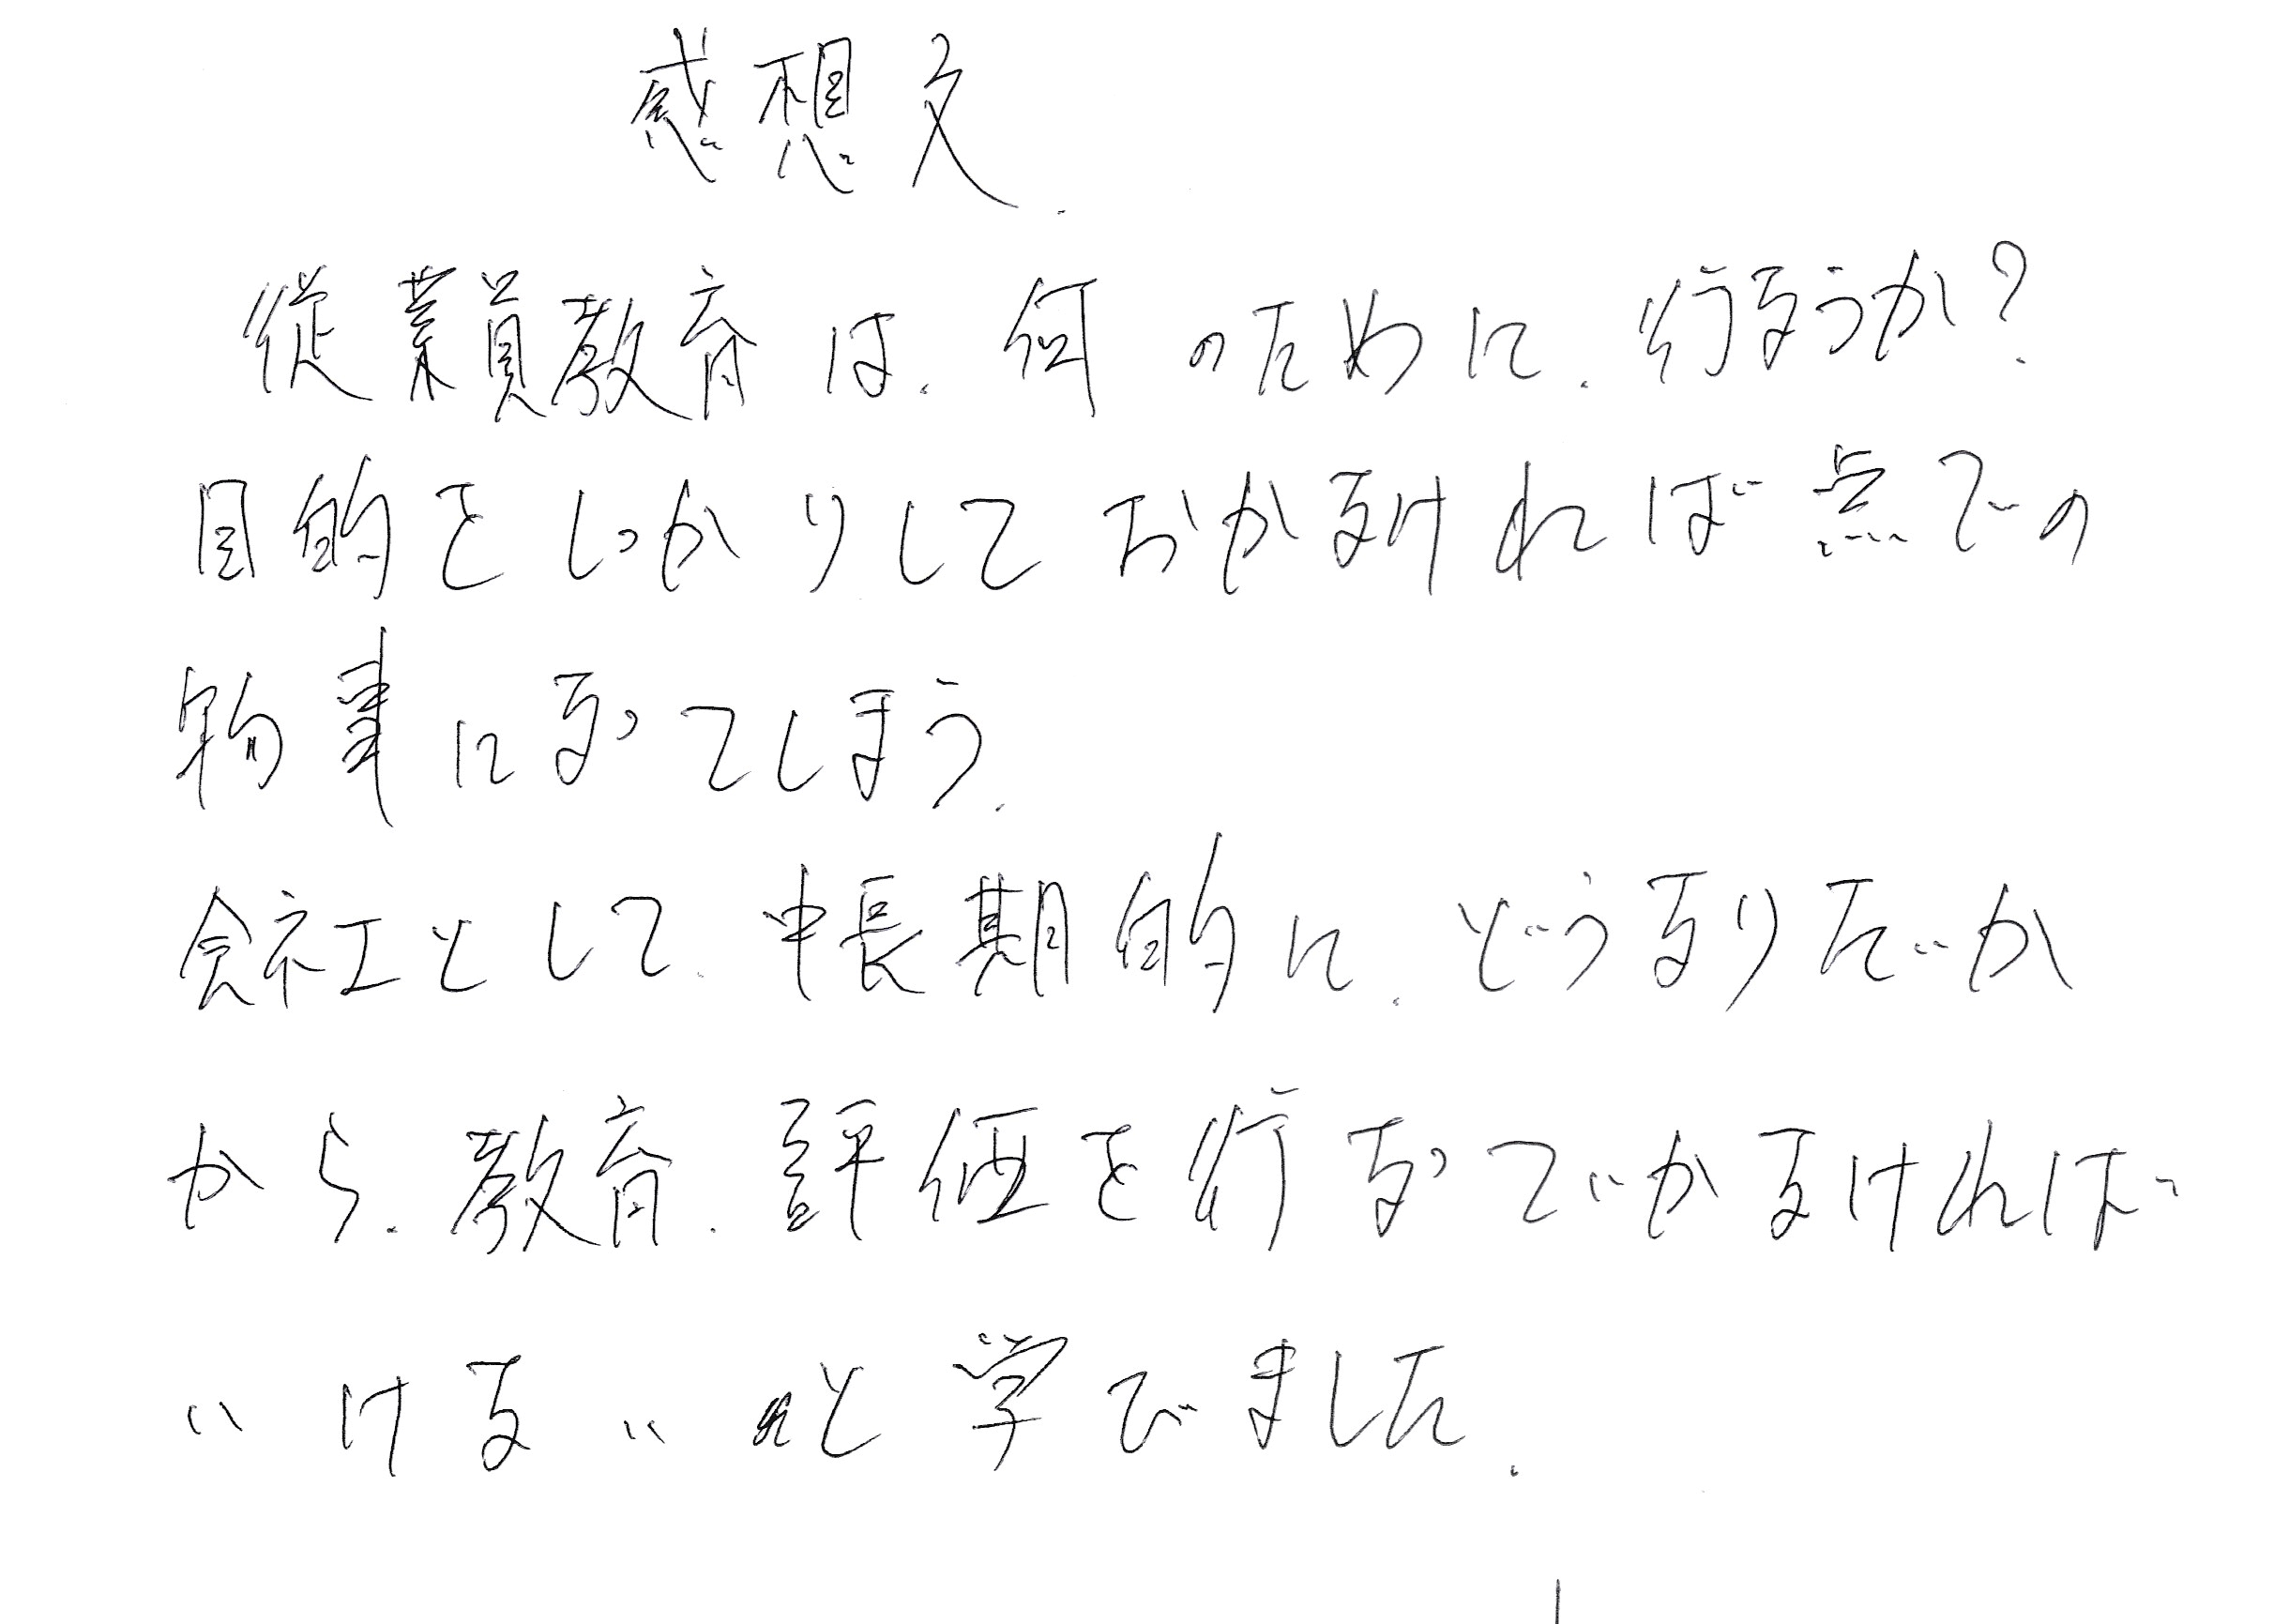 感想文.
従業員教育は、何のために、行なうか?
目的をしっかりしておかなければ点での
物事になってしまう.
会社として、中長期的に、どうなりたいか
から、教育、評価を行なっていかなければ
いけないと学びました.